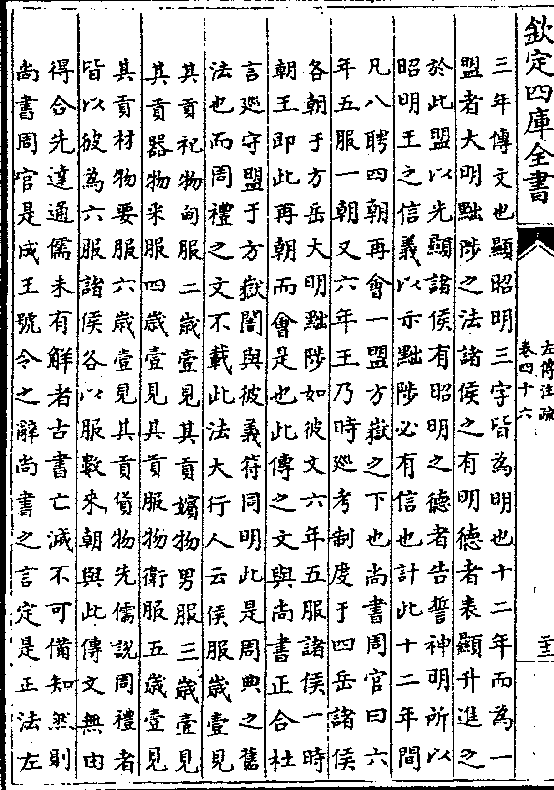 欽定四庫全書
左傳注疏
卷四十六
三年傳文也顯昭明三字皆為明也十二年而為一
盟者大明黜陟之法諸侯之有明德者表顯升進之
於此盟以先顯諸侯有昭明之德者告誓神明所以
昭明王之信義以示黜陟必有信也計此十二年間
凡八聘四朝再會一盟方嶽之下也尚書周官曰六
年五服一朝又六年王乃時巡考制度于四岳諸侯
各朝于方岳大明黜陟如彼文六年五服諸侯一時
朝王即此再朝而會是也此傳之文與尚書正合杜
言巡守盟于方嶽闇與彼義符同明此是周典之舊
法也而周禮之文不載此法大行人云侯服歲壹見
其貢祀物甸服二歲壹見其貢嬪物男服三歲壹見
其貢器物采服四歲壹見其貢服物衛服五歲壹見
其貢材物要服六歲壹見其貢貨物先儒説周禮者
皆以彼為六服諸侯各以服數來朝與此傳文無由
得合先達通儒未有解者古書亡滅不可備知然則
尚書周官是成王號令之辭尚書之言定是正法左